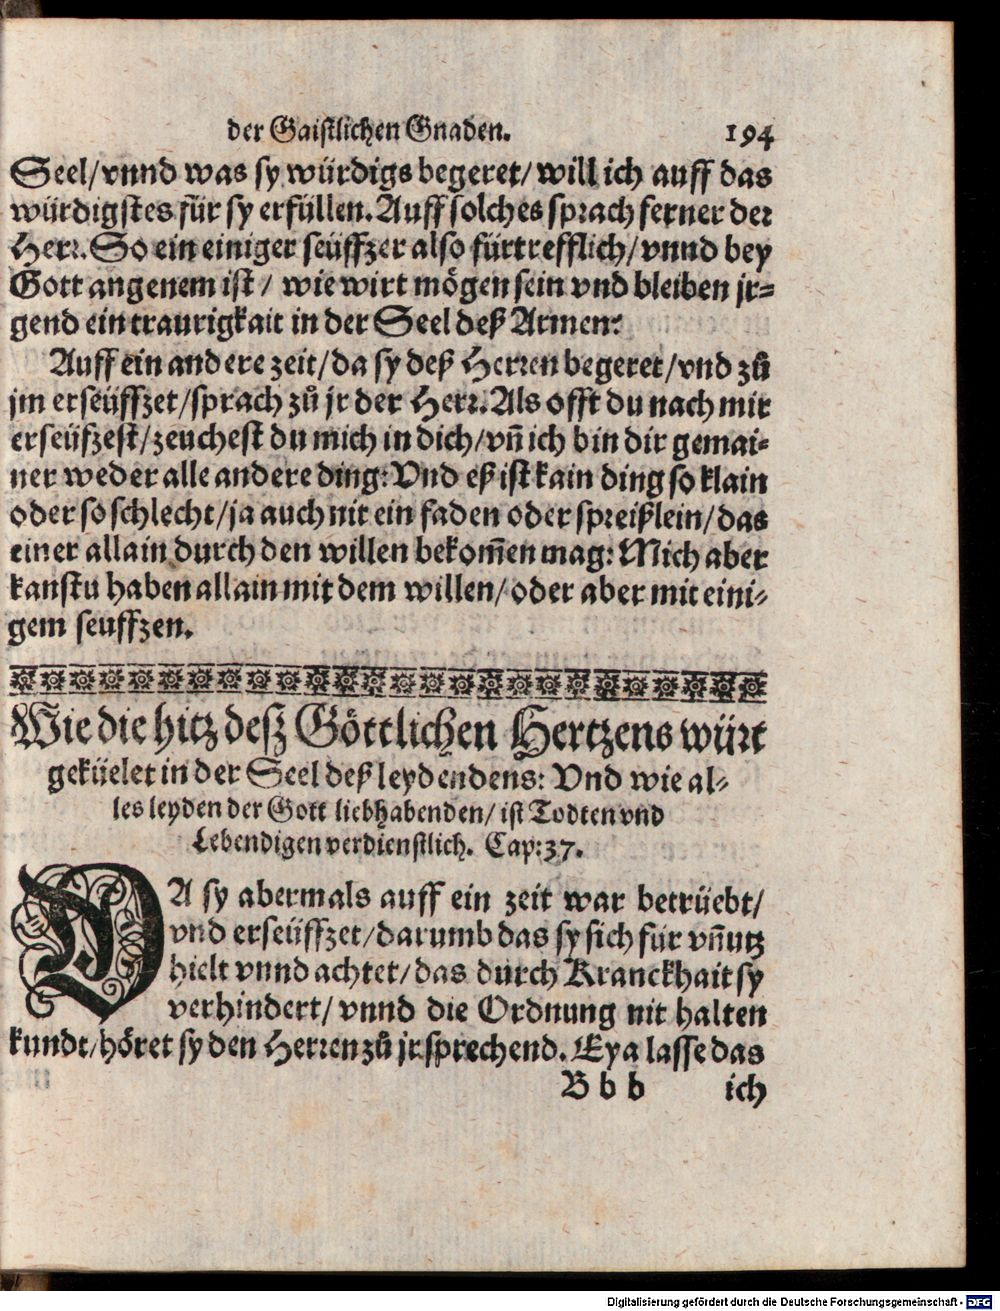 der Gaistlichen Gnaden. 194
Seel/vnnd was sy würdigs begeret/ will ich auff das
würdigstes für sy erfüllen. Auff solches sprach ferner der
Herr. So ein einiger seüffzer also fürtrefflich/ vnnd bey
Gott angenem ist / wie wirt mögen sein vnd bleiben jr=
gend ein traurigkait in der Seel deß Armen?
Auff ein andere zeit/ da sy deß Herren begeret/ vnd zů
jm erseüffzet/ sprach zů jr der Herr. Als offt du nach mir
erseüfzest/ zeuchest du mich in dich/ vn̄ ich bin dir gemai=
ner weder alle andere ding: Vnd eß ist kain ding so klain
oder so schlecht/ ja auch nit ein faden oder spreißlein/ das
einer allain durch den willen bekom̄en mag: Mich aber
kanstu haben allain mit dem willen/ oder aber mit eini=
gem seuffzen.
Wie die hitz desz Göttlichen Hertzens würt
geküelet in der Seel deß leydendens: Vnd wie al=
les leyden der Gott liebhabenden/ ist Todten vnd
Lebendigen verdienstlich. Cap: 37.
DA sy abermals auff ein zeit war betrüebt/
vnd erseüffzet/ darumb das sy sich für vn̄utz
hielt vnnd achtet/ das durch Kranckhait sy
verhindert/ vnnd die Ordnung nit halten
kundt/ höret sy den Herren zů jr sprechend. Eya lasse das
B b b ich
Digitalisierung gefördert durch die Deutsche Forschungsgemeinschaft - DFG